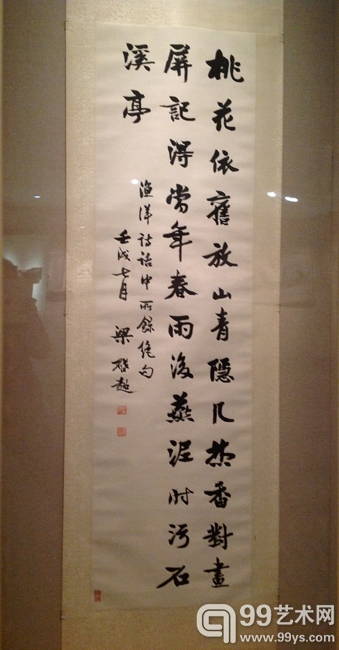 桃花依舊放山青隱几焚香對畫
屏記得當年春雨後燕泥时污石
溪亭
漁洋詩話中所錄絶句
壬戌七月 梁啟超
99艺术网
www.99ys.com